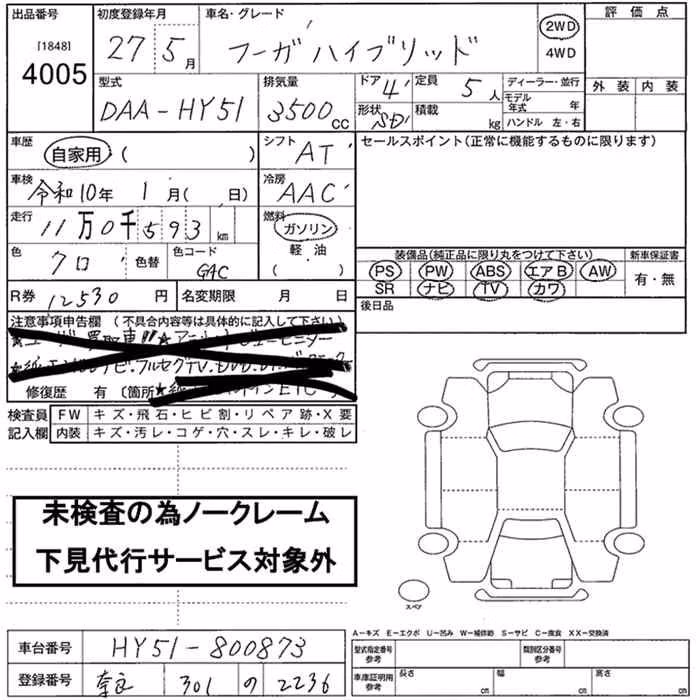 出品番号
[1848]
4005
初度登録年月
27 5 月
車名・グレード
フーガハイブリッド
2WD
4WD
評価点
外装 内装
型式
DAA-HY51
排気量
3500 CC
ドア 4
形状 SD
定員 5 人
積載 kg
ディーラー・並行
モデル年式 年
ハンドル 左・右
車歴
自家用・( )
シフト
AT
セールスポイント(正常に機能するものに限ります)
車検
令和10年 1月( 日)
冷房
AAC
走行
11万0千593 km
燃料
ガソリン
軽・油
( )
色
クロ
色替
色コード
GAC
装備品(純正品に限り丸をつけて下さい)
PS PW ABS エアB AW
SR ナビ TV カワ
新車保証書
有・無
R券 12530 円
名変期限 月 日
後日品
注意事項申告欄 (不具合内容等は具体的に記入して下さい)
修復歴 有 (箇所
検査員記入欄
FW キズ・飛石・ヒビ割・リペア跡・X要
内装 キズ・汚レ・コゲ・穴・スレ・キレ・破レ
未検査の為ノークレーム
下見代行サービス対象外
スペア
A-キズ E-エクボ U-凹み W-補修跡 S-サビ C-腐食 XX-交換済
車台番号 HY51-800873
登録番号 奈良 301 の 2236
型式指定番号 参考
類別区分番号 参考
車庫証明用 参考
長さ cm
幅 cm
高さ cm